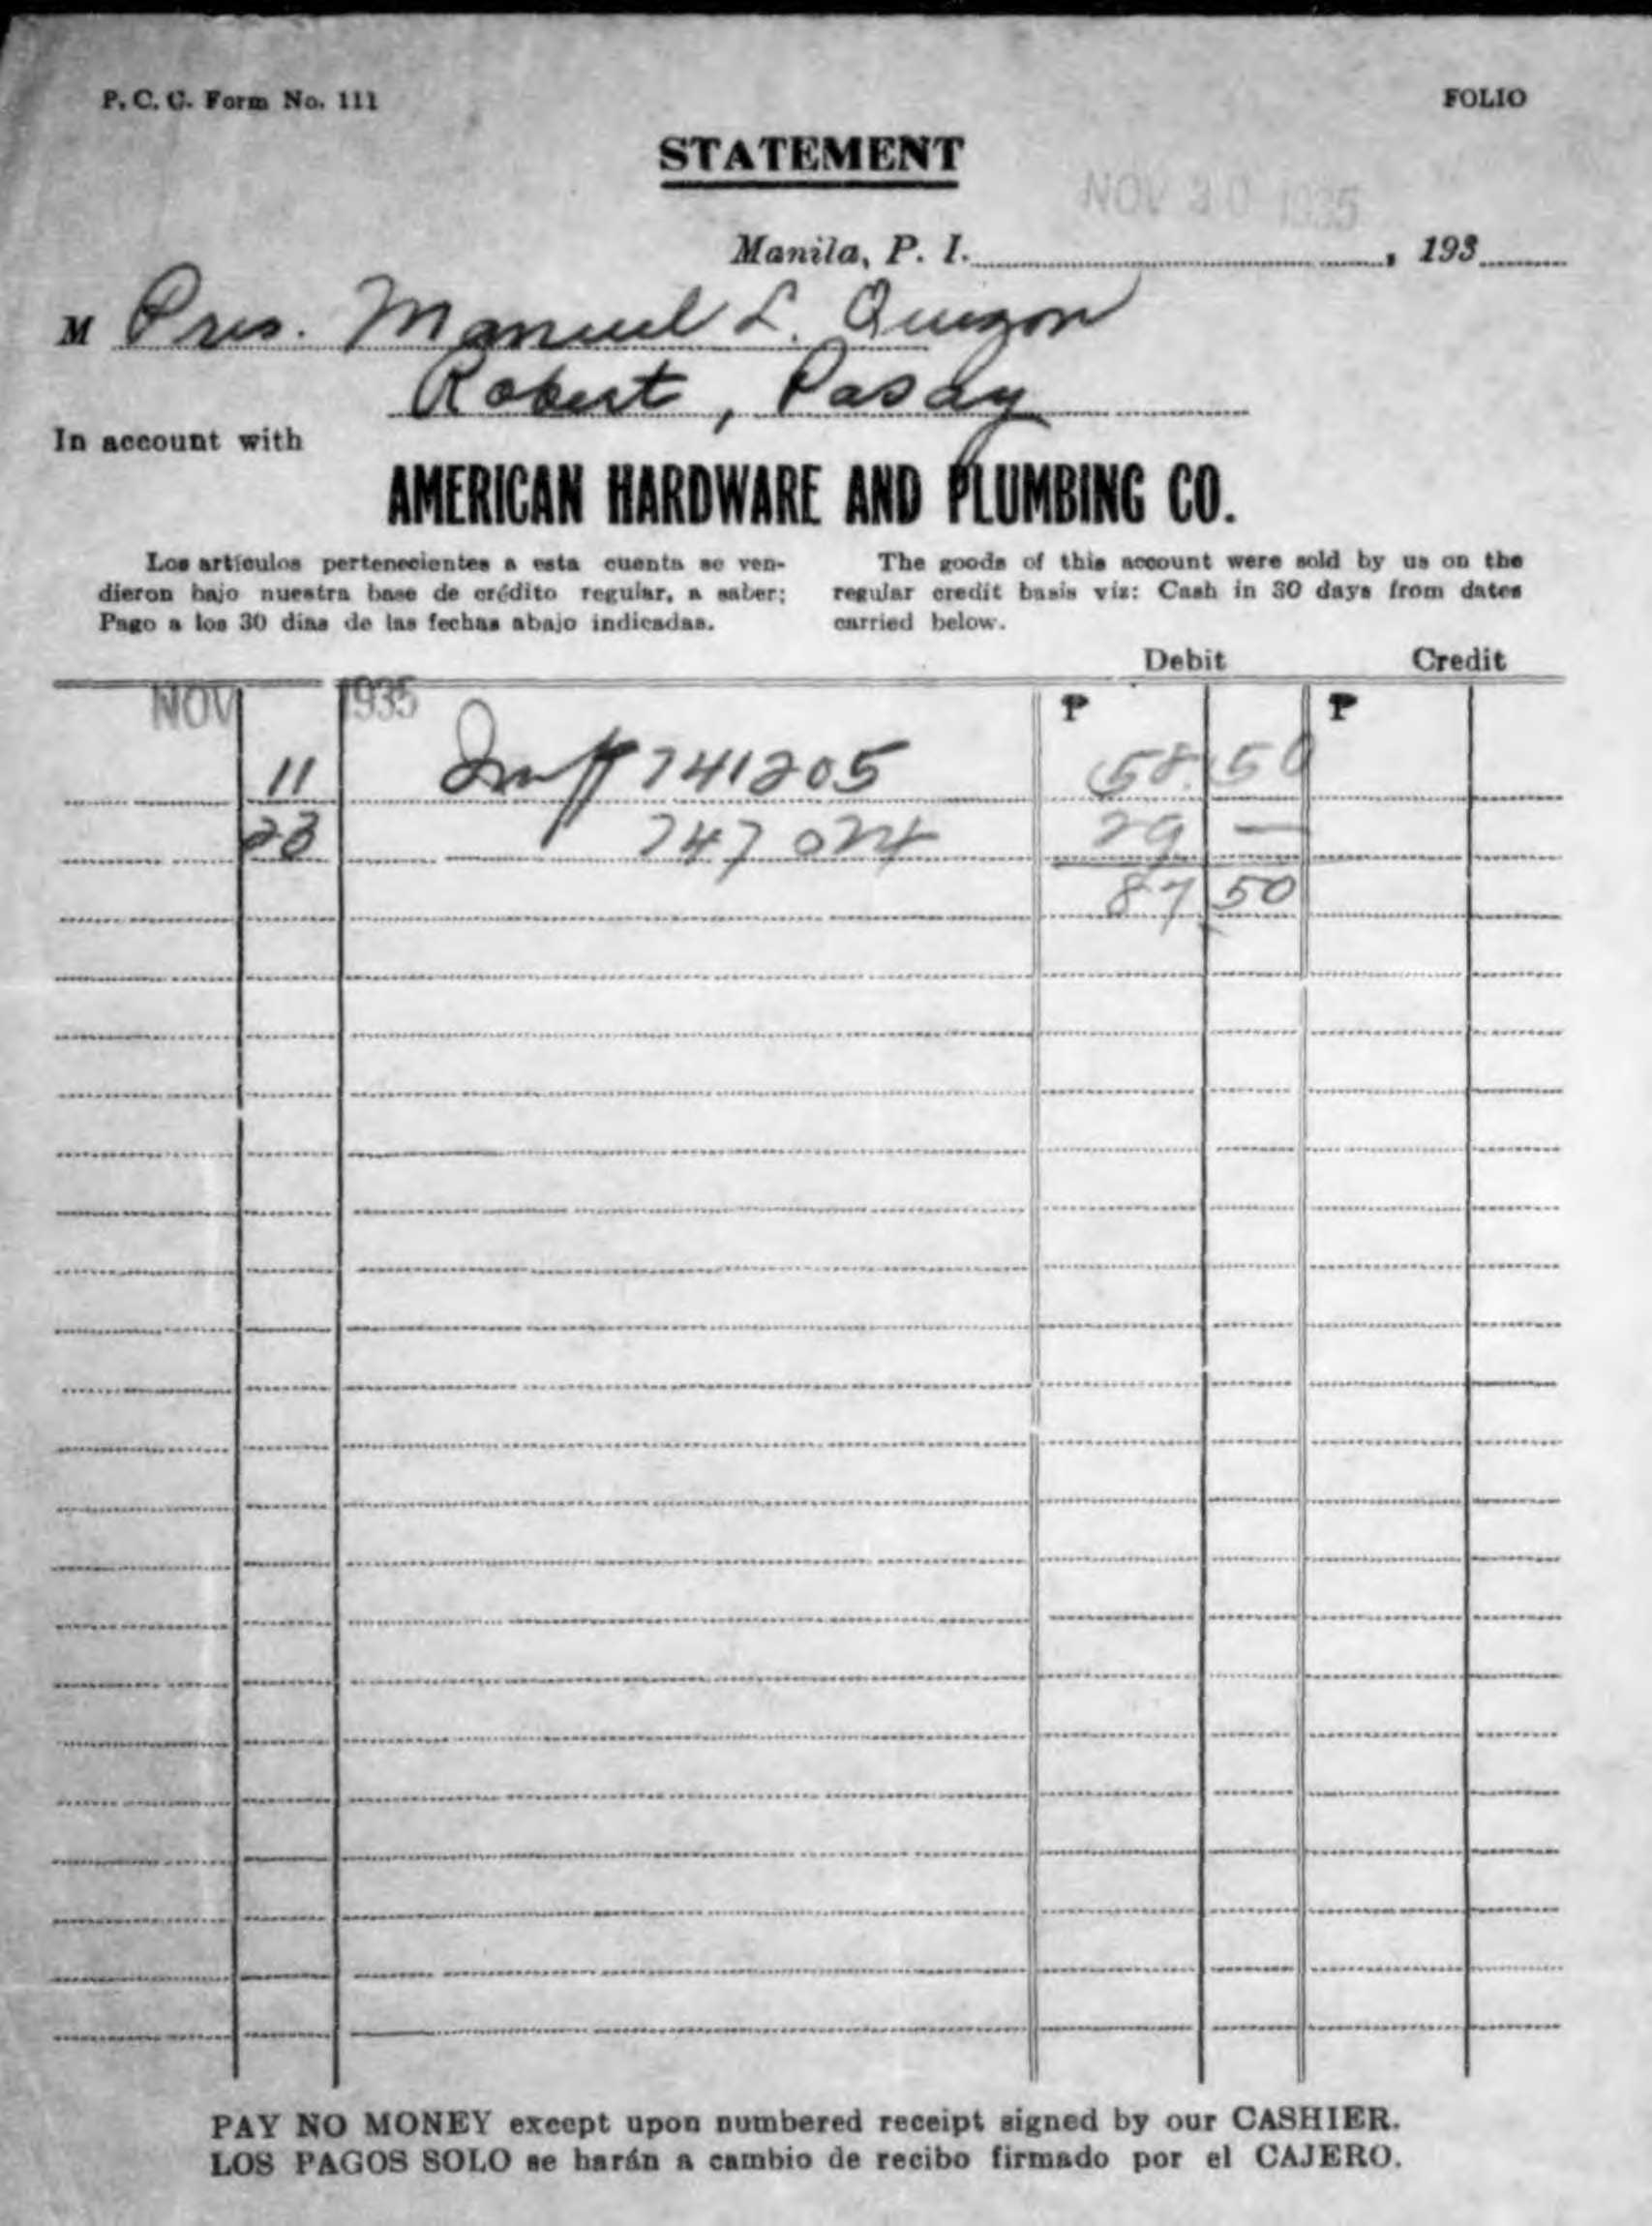 P. C. C. Form No. 111
FOLIO
STATEMENT
NOV 30 1935
Manila, P. I. , 193
M Pres. Manuel L. Quezon
Robert, Pasay
In account with
AMERICAN HARDWARE AND PLUMBING CO.
Los artículos pertenecientes a esta cuenta se ven-
dieron bajo nuestra base de crédito regular, a saber;
Pago a los 30 dias de las fechas abajo indicadas.
The goods of this account were sold by us on the
regular credit basis viz: Cash in 30 days from dates
carried below.
Debit Credit
NOV 1935 ₱ ₱
11 741205 58.50
23 747024 29 —
87 50
PAY NO MONEY except upon numbered receipt signed by our CASHIER.
LOS PAGOS SOLO se harán a cambio de recibo firmado por el CAJERO.